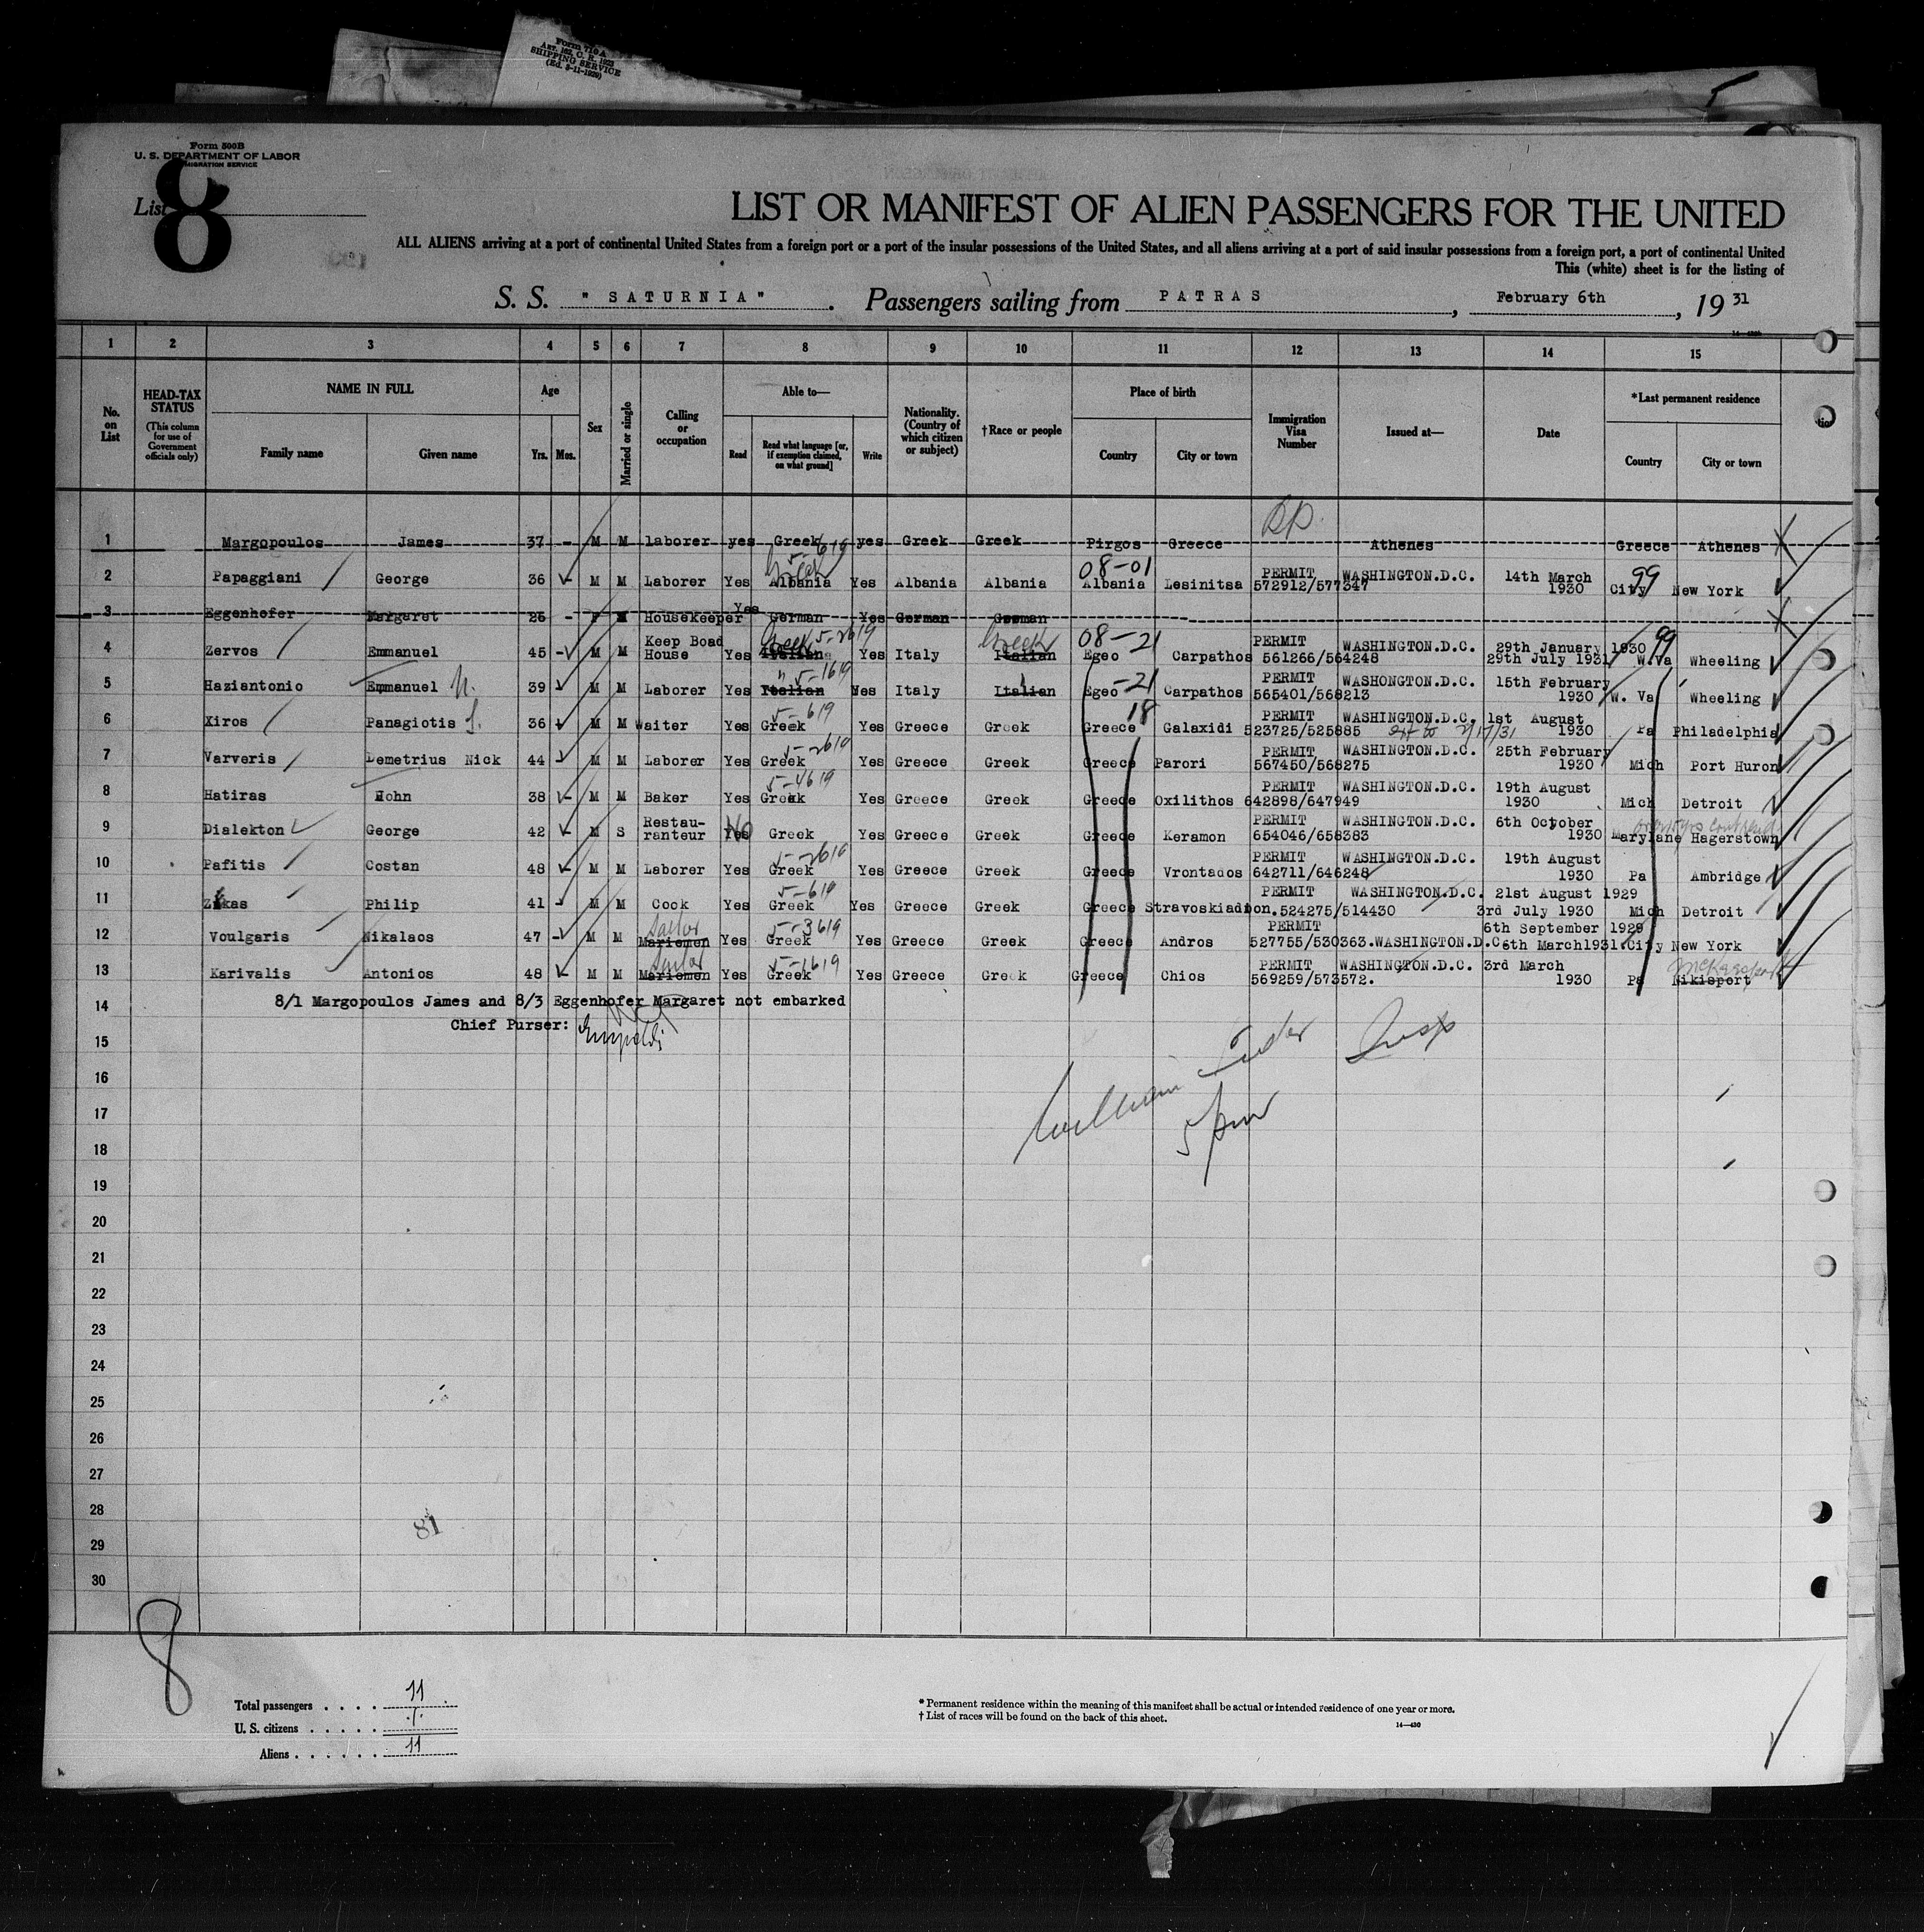 Form 710A
ART. 162, C. R. 1923
SHIPPING SERVICE
(Ed. 8-11-1929)
5
Form 500B
U. S. DEPARTMENT OF LABOR
IMMIGRATION SERVICE
List 8
LIST OR MANIFEST OF ALIEN PASSENGERS FOR THE UNITED
ALL ALIENS arriving at a port of continental United States from a foreign port or a port of the insular possessions of the United States, and all aliens arriving at a port of said insular possessions from a foreign port, a port of continental United
This (white) sheet is for the listing of
S. S. " SATURNIA " . Passengers sailing from PATRAS , February 6th , 19 31
1 2 3 4 5 6 7 8 9 10 11 12 13 14 15
No. on List
HEAD-TAX STATUS
(This column for use of Government officials only)
NAME IN FULL
Family name Given name
Age
Yrs. Mos.
Sex
Married or single
Calling or occupation
Able to—
Read Read what language [or, if exemption claimed, on what ground] Write
Nationality. (Country of which citizen or subject)
†Race or people
Place of birth
Country City or town
Immigration Visa Number
Issued at—
Date
*Last permanent residence
Country City or town
1 Margopoulos James 37 - M M laborer yes Greek yes Greek Greek Pirgos Greece Athenes Greece Athenes X
5-619
Greek 08-01
2 Papaggiani George 36 - M M Laborer Yes Albania Yes Albania Albania Albania Lesinitsa PERMIT 572912/577347 WASHINGTON.D.C. 14th March 1930 99 City New York
3 Eggenhofer Margaret 26 - F M Housekeeper Yes German Yes German German X
Greek 5-2619 Greek 08-21
4 Zervos Emmanuel 45 - M M Keep Boad House Yes Italian Yes Italy Italian Egeo Carpathos PERMIT 561266/564248 WASHINGTON.D.C. 29th January 1930 29th July 1931 99 W.Va Wheeling
" 5-1619
5 Haziantonio Emmanuel N. 39 - M M Laborer Yes Italian Yes Italy Italian Egeo -21 Carpathos PERMIT 565401/568213 WASHONGTON.D.C. 15th February 1930 W. Va Wheeling
5-619 18
6 Xiros Panagiotis S. 36 - M M Waiter Yes Greek Yes Greece Greek Greece Galaxidi PERMIT 523725/525885 WASHINGTON.D.C. 1st August 1930 Pa Philadelphia
5-2619
7 Varveris Demetrius Nick 44 - M M Laborer Yes Greek Yes Greece Greek Greece Parori PERMIT 567450/568275 WASHINGTON.D.C. 25th February 1930 Mich Port Huron
5-4619
8 Hatiras John 38 - M M Baker Yes Greek Yes Greece Greek Greece Oxilithos PERMIT 642898/647949 WASHINGTON.D.C. 19th August 1930 Mich Detroit
9 Dialekton George 42 - M S Restau-ranteur Yes No Greek Yes Greece Greek Greece Keramon PERMIT 654046/658383 WASHINGTON.D.C. 6th October 1930 Marylane Hagerstown
5-2619
10 Pafitis Costan 48 - M M Laborer Yes Greek Yes Greece Greek Greece Vrontados PERMIT 642711/646248 WASHINGTON.D.C. 19th August 1930 Pa Ambridge
5-619
11 Zikas Philip 41 - M M Cook Yes Greek Yes Greece Greek Greece Stravoskiadion. PERMIT 524275/514430 WASHINGTON.D.C. 21st August 1929 3rd July 1930 Mich Detroit
Sailor 5-3619
12 Voulgaris Nikalaos 47 - M M Mariemen Yes Greek Yes Greece Greek Greece Andros PERMIT 527755/530363. WASHINGTON.D.C 6th September 1929 6th March1931. City New York
Sailor 5-1619 McKeesport
13 Karivalis Antonios 48 - M M Mariemen Yes Greek Yes Greece Greek Greece Chios PERMIT 569259/573572. WASHINGTON.D.C. 3rd March 1930 Pa Nikisport
14 8/1 Margopoulos James and 8/3 Eggenhofer Margaret not embarked
Chief Purser:
15
16
William Insp
17
18
19
20
21
22
23
24
25
26
27
28
81
29
30
8
Total passengers . . . . 11
U. S. citizens . . . . .
Aliens . . . . . . 11
* Permanent residence within the meaning of this manifest shall be actual or intended residence of one year or more.
† List of races will be found on the back of this sheet.
14—430